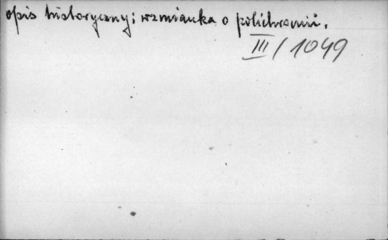 opis historyczny; wzmianka o polichromii.
III/1049